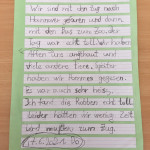 Wir sind mit den Zug nach
Hannover gefaren und dann
mit der Bus zum Zoo. Der
Tag war echt toll. Wir haben
Affen angeschaut und
viele andere Tiere. Später
haben wir Pommes gegessen.
Es war auch sehr heiß.
Ich fand die Robben echt toll.
Leider hatten wir wenig Zeit
wir mussten zum Zug.